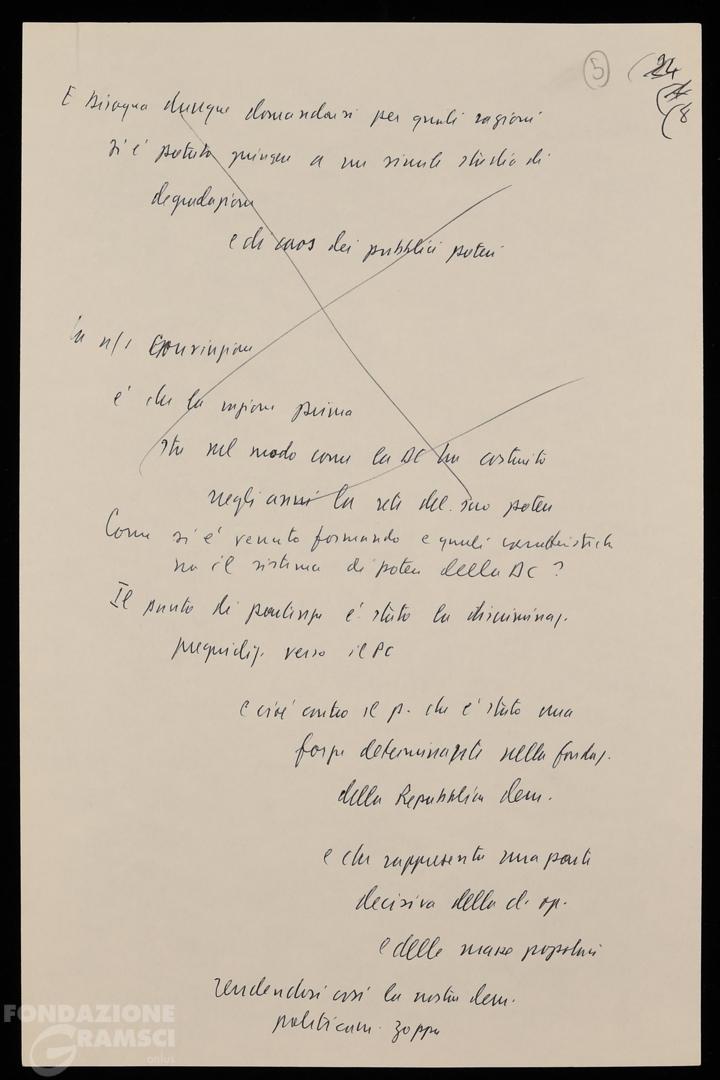 5
24
8
E bisogna dunque domandarsi per quali ragioni
si è potuto giungere a un simile stadio di
degradazione
e di caos dei pubblici poteri
La n/s convinzione
è che la ragione prima
sta nel modo come la DC ha costruito
negli anni la rete del suo potere
Come si è venuto formando e quali caratteristiche
ha il sistema di potere della DC ?
Il punto di partenza è stato la discriminaz.
pregiudiz. verso il PC
e cioè contro il p. che è stato una
forza determinante nella fondaz.
della Repubblica dem.
e che rappresenta una parte
decisiva della cl. op.
e delle masse popolari
rendendosi così la nostra dem.
politicam. zoppa
FONDAZIONE
GRAMSCI
onlus